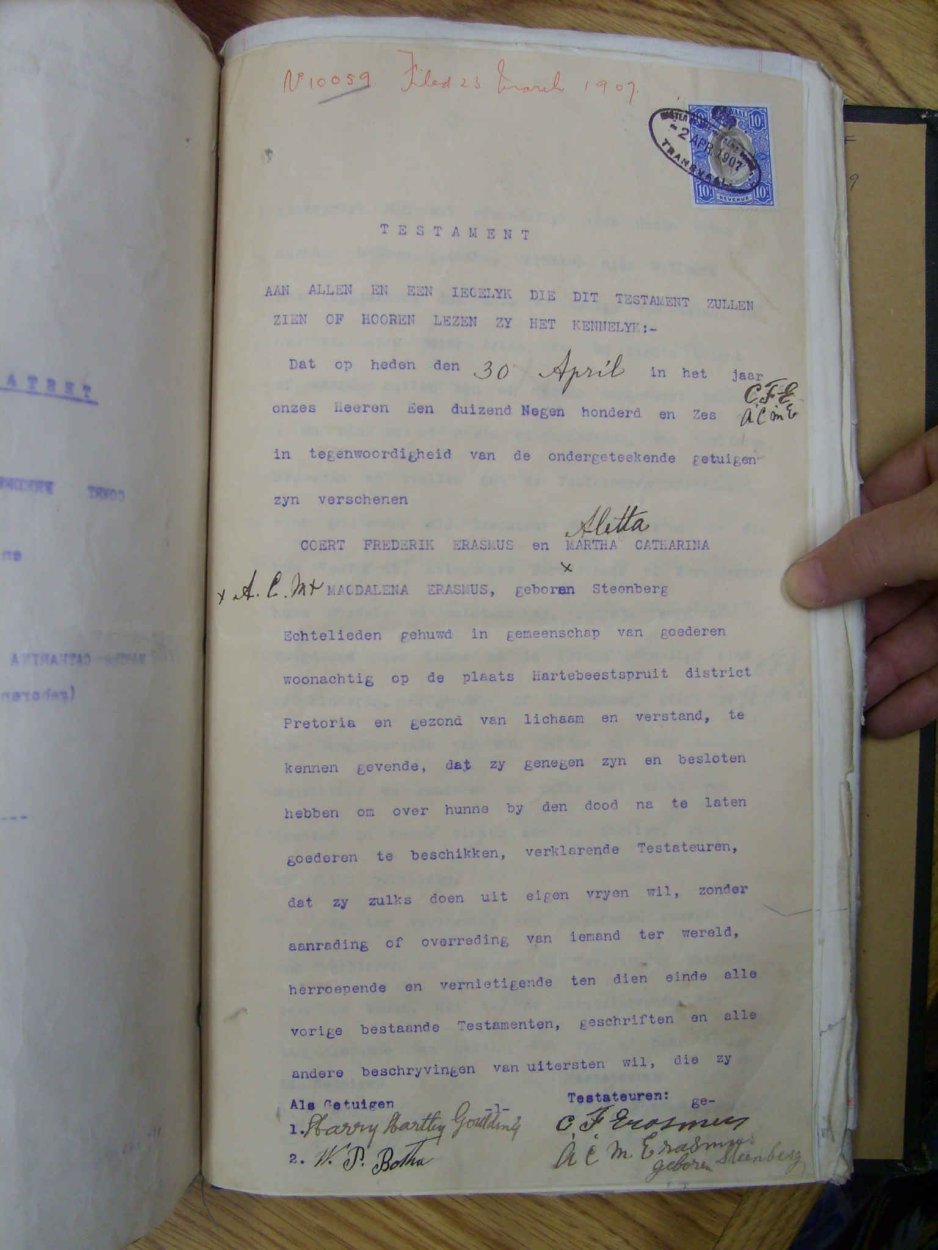 No 10059 Filed 23 March 1907.
10s 10s
-2 APR 1907
TRANSVAAL
10s REVENUE 10s
TESTAMENT
AAN ALLEN EN EEN IEGELYK DIE DIT TESTAMENT ZULLEN
ZIEN OF HOOREN LEZEN ZY HET KENNELYK:-
Dat op heden den 30 April in het jaar
C.F.E
onzes Heeren Een duizend Negen honderd en Zes A C M E
in tegenwoordigheid van de ondergeteekende getuigen
zyn verschenen
Aletta
COERT FREDERIK ERASMUS en MARTHA CATHARINA
x
x A. C. M x MAGDALENA ERASMUS, geboren Steenberg
Echtelieden gehuwd in gemeenschap van goederen
woonachtig op de plaats Hartebeestspruit district
Pretoria en gezond van lichaam en verstand, te
kennen gevende, dat zy genegen zyn en besloten
hebben om over hunne by den dood na te laten
goederen te beschikken, verklarende Testateuren,
dat zy zulks doen uit eigen vryen wil, zonder
aanrading of overreding van iemand ter wereld,
herroepende en vernietigende ten dien einde alle
vorige bestaande Testamenten, geschriften en alle
andere beschryvingen van uitersten wil, die zy
Als Getuigen Testateuren: ge-
1. Harry Hartley Goulding C F Erasmus
2. W. P. Botha A C M Erasmus
geboren Steenberg